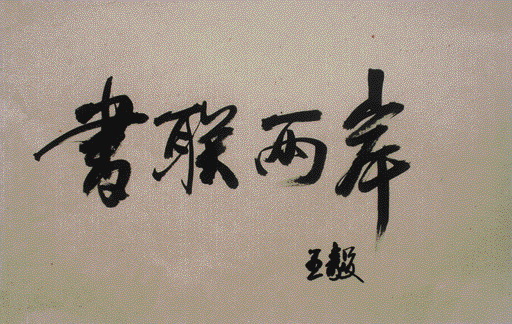 書联两岸
王毅